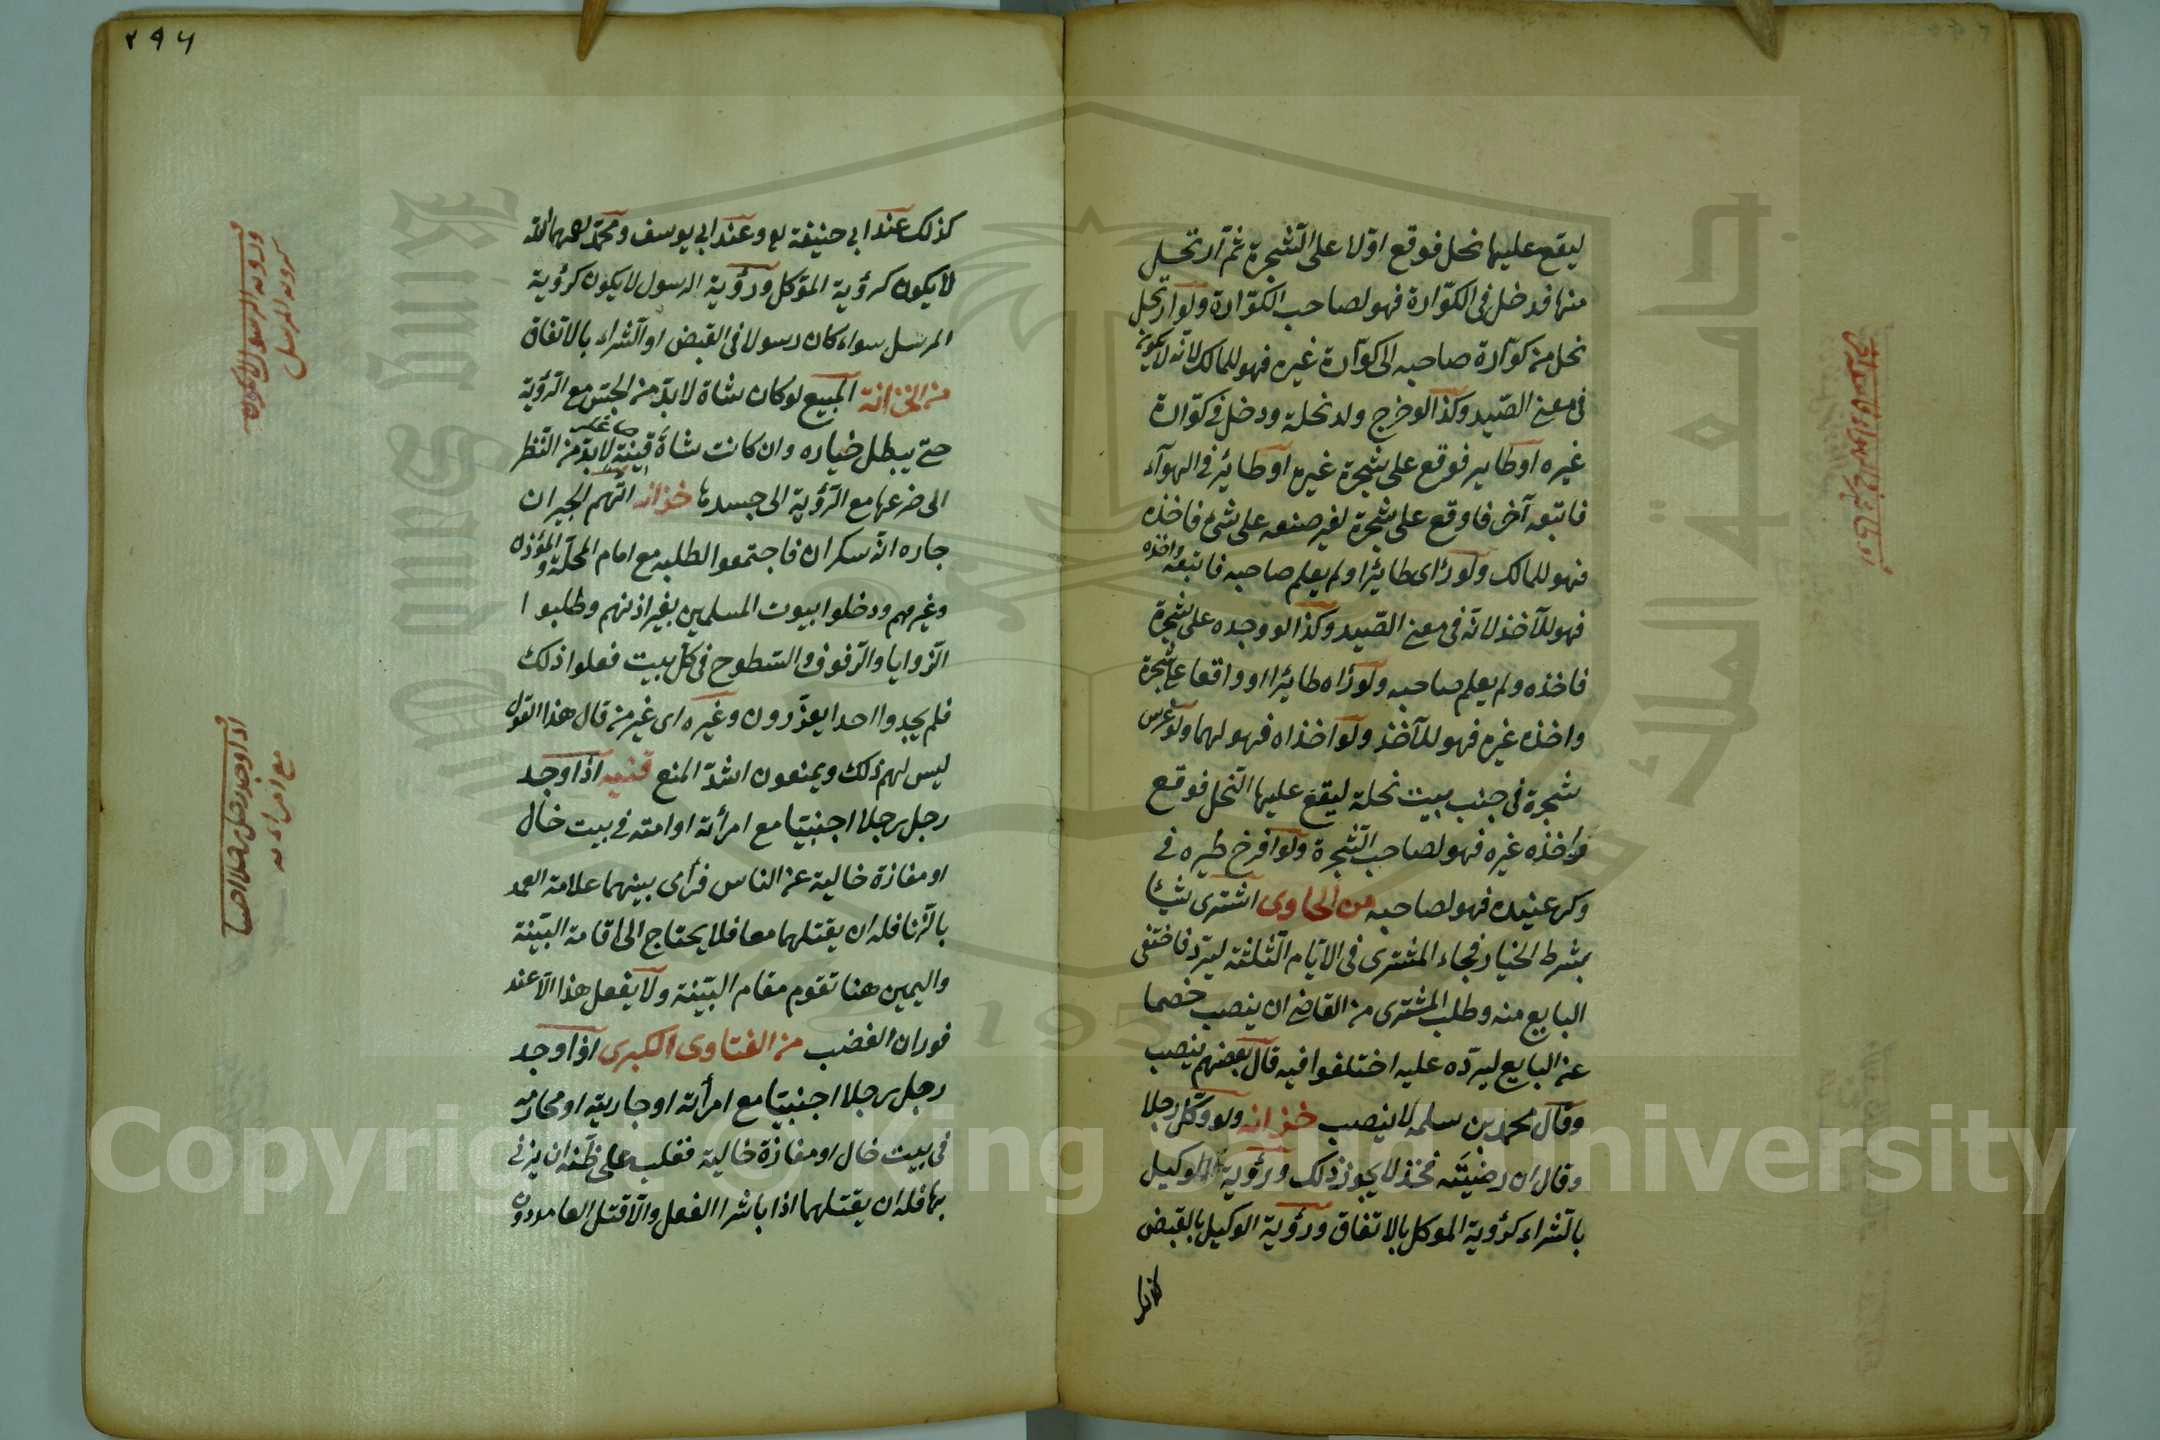 ليقع عليها نحل فوقع اولا على الشجرة ثم ارتحل
منها فدخل فى الكوّارة فهو لصاحب الكوّارة ولو ارتحل
نحل من كوّارة صاحبه الى كوّارة غيره فهو للمالك لانه لا يكون
فى معنى الصّيد وكذا لو خرج ولد نحلة ودخل فى كوّارة
غيره او طاير فوقع على شجرة غيره او طائر فى الهوآء
فاتبعه آخر فاوقع على شجرة لغير صنعه على شئ فاخذه
فهو للمالك ولو رأى طائرا ولم يعلم صاحبه فاتبعه واخذه
فهو للآخذ لانّه فى معنى الصّيد وكذا لو وجده على شجرة
فاخذه ولم يعلم صاحبه ولو رآه طائرا او واقعا على شجرة
واخذه غيره فهو للآخذ ولو اخذاه فهو لهما ولو غرس
شجرة فى جنب بيت نحلة ليقع عليها النّحل فوقع
واخذه غيره فهو لصاحب الشجرة ولو افرخ طيره فى
وكر عنده فهو لصاحبه من الحاوى اشترى شيئا
بشرط الخيار فجاء المشترى فى الايّام الثّلثة ليردّ فاختفى
البايع منه وطلب المشترى من القاضى ان ينصب خصما
عن البايع ليردّه عليه اختلفوا فيه قال بعضهم ينصب
وقال محمد بن سلمة لا ينصب خزانه ولو وكّل رجلا
وقال ان رضيته فخذ لا يجوز ذلك ورؤية الوكيل
بالشراء كرؤية الموكل بالاتفاق ورؤية الوكيل بالقبض
كذلك عند ابى حنيفة وعند ابى يوسف ومحمد رحمهما الله
لا يكون كرؤية الموكل ورؤية الرسول لا يكون كرؤية
المرسل سواء كان رسولا فى القبض او الشراء بالاتفاق
من الخزانة المبيع لو كان شاة لا بدّ من الجسّ مع الرّؤية
حتى يبطل خياره وان كانت شاة قنية لا بدّ من النّظر
الى ضرعها مع الرّؤية الى جسدها خزانه اتّهم الجيران
جاره انّه سكران فاجتمعوا لطلبه مع امام المحلّة والمؤذن
وغيرهم ودخلوا بيوت المسلمين بغير اذنهم وطلبوا
الزّوايا والرّفوف والسّطوح فى كلّ بيت فعلوا ذلك
فلم يجدوا احدا يعزّرون وغيره اى غير من قال هذا القول
ليس لهم ذلك ويمنعون اشدّ المنع قنيه اذا وجد
رجل رجلا اجنبيّا مع امرأته او امته فى بيت خال
او مفازة خالية عن الناس فرأى بينهما علامة العمد
بالزّنا فله ان يقتلهما معا فلا يحتاج الى اقامة البيّنة
واليمين هنا تقوم مقام البيّنة ولا يفعل هذا الّا عند
فوران الغضب من الفتاوى الكبرى اذا وجد
رجل رجلا اجنبيّا مع امرأته او جاريته او محارمه
فى بيت خال او مفازة خالية فغلب على ظنّه ان يزنى
بها فله ان يقتلهما اذا باشرا الفعل والّا قتل
٢٩٦
Copyright © King Saud University
جامعة الملك سعود
King Saud University
195